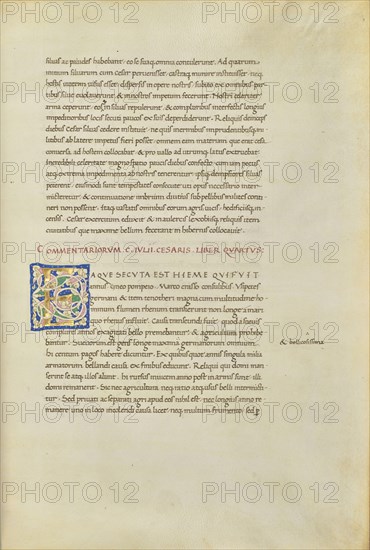 siluas ac paludes habebant. eo se suaq. omnia contulerunt. Ad quarum
initium siluarum cum Cesar peruenisset. castraq. munire instituisset. neq.
hostis interim uisus esset. dispersis in opere nostris. subito ex omnibus par
tibus siluae euolauerunt. & in nostros impetum fecerunt. Nostri celeriter
arma ceperunt. eosq. in siluas repulerunt. & compluribus interfectis longius
impeditioribus locis secuti paucos ex suis deperdiderunt. Reliquis deinceps
diebus Cesar siluas cedere instituit. ne quis inermibus imprudentibusq. mi
litibus ab latere impetus fieri posset. omnem eam materiam quae erat cesa
conuersa ad hostem collocabat. & pro uallo ad utrumq. latus extruebat.
Incredibili celeritate magno spatio paucis diebus confecto. cum iam pecus
atq. extrema impedimenta ab nostris tenerentur. ipsiq. densiores siluas
peterent. eiusmodi sunt tempestates consecutae uti opus necessario inter
mitteretur. & continuatione imbrium diutius sub pellibus milites conti
neri non possent. itaq. uastatis omnibus eorum agris. uicis. aedificiisq. in
censis. Cesar exercitum reduxit & in aulercis lexobiisq. reliquis item
ciuitatibus quae proxime bellum fecerant in hibernis collocauit.
COMMENTARIORVM. C. IVLII CESARIS. LIBER QVARTVS:
EAQVE SECVTA EST HIEME QVI FVIT
annus cneo pompeio. Marco crasso consulibus. Vsipetes
germani & item tenchtheri magna cum multitudine ho
minum flumen rhenum transierunt non longe a mari
quo rhenus influit. Causa transeundi fuit. quod a sueuis
complures annos exagitati bello premebantur. & agricultura prohibe
bantur. Sueuorum est gens longe maxima germanorum omnium.
& bellicosissima
hi centum pagos habere dicuntur. Ex quibus quot annis singula milia
armatorum bellandi causa ex finibus educunt. Reliqui qui domi man
serint se atq. illos alunt. hi rursus inuicem anno post in armis sunt. illi
domi remanent. Sic nec agricultura. nec ratio atq. usus belli intermitti
tur. Sed priuati ac separati agri apud eos nihil est. nec longius anno re
manere uno in loco incolendi causa licet. neq. multum frumento sed
PHOTO 12